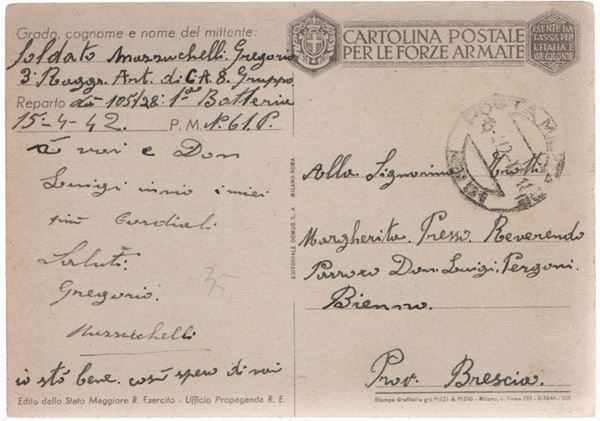 Grado, cognome e nome del mittente:
Soldato Mazzuchelli Gregorio
3° Raggr. Art. di C A 8. Gruppo
Reparto da 105/28: 1ª Batteria
15-4-42. P. M. N. 61. P.
A voi e Don
Luigi invio i miei
più Cordiali
Saluti.
Gregorio.
Mazzuchelli
io stò bene. così spero di voi
Edito dallo Stato Maggiore R. Esercito - Ufficio Propaganda R. E.
EDITORIALE DOMUS S. A. MILANO-ROMA
CARTOLINA POSTALE
PER LE FORZE ARMATE
ESENTE DA
TASSA PER
L'ITALIA E
SUE COLONIE
POSTA MI
Alla Signorina Trotti
Margherita. Presso Reverendo
Parroco Don. Luigi. Pergoni.
Bienno.
Prov. Brescia.
Stampa Grafitalia già PIZZI & PIZIO - Milano, v. Roma